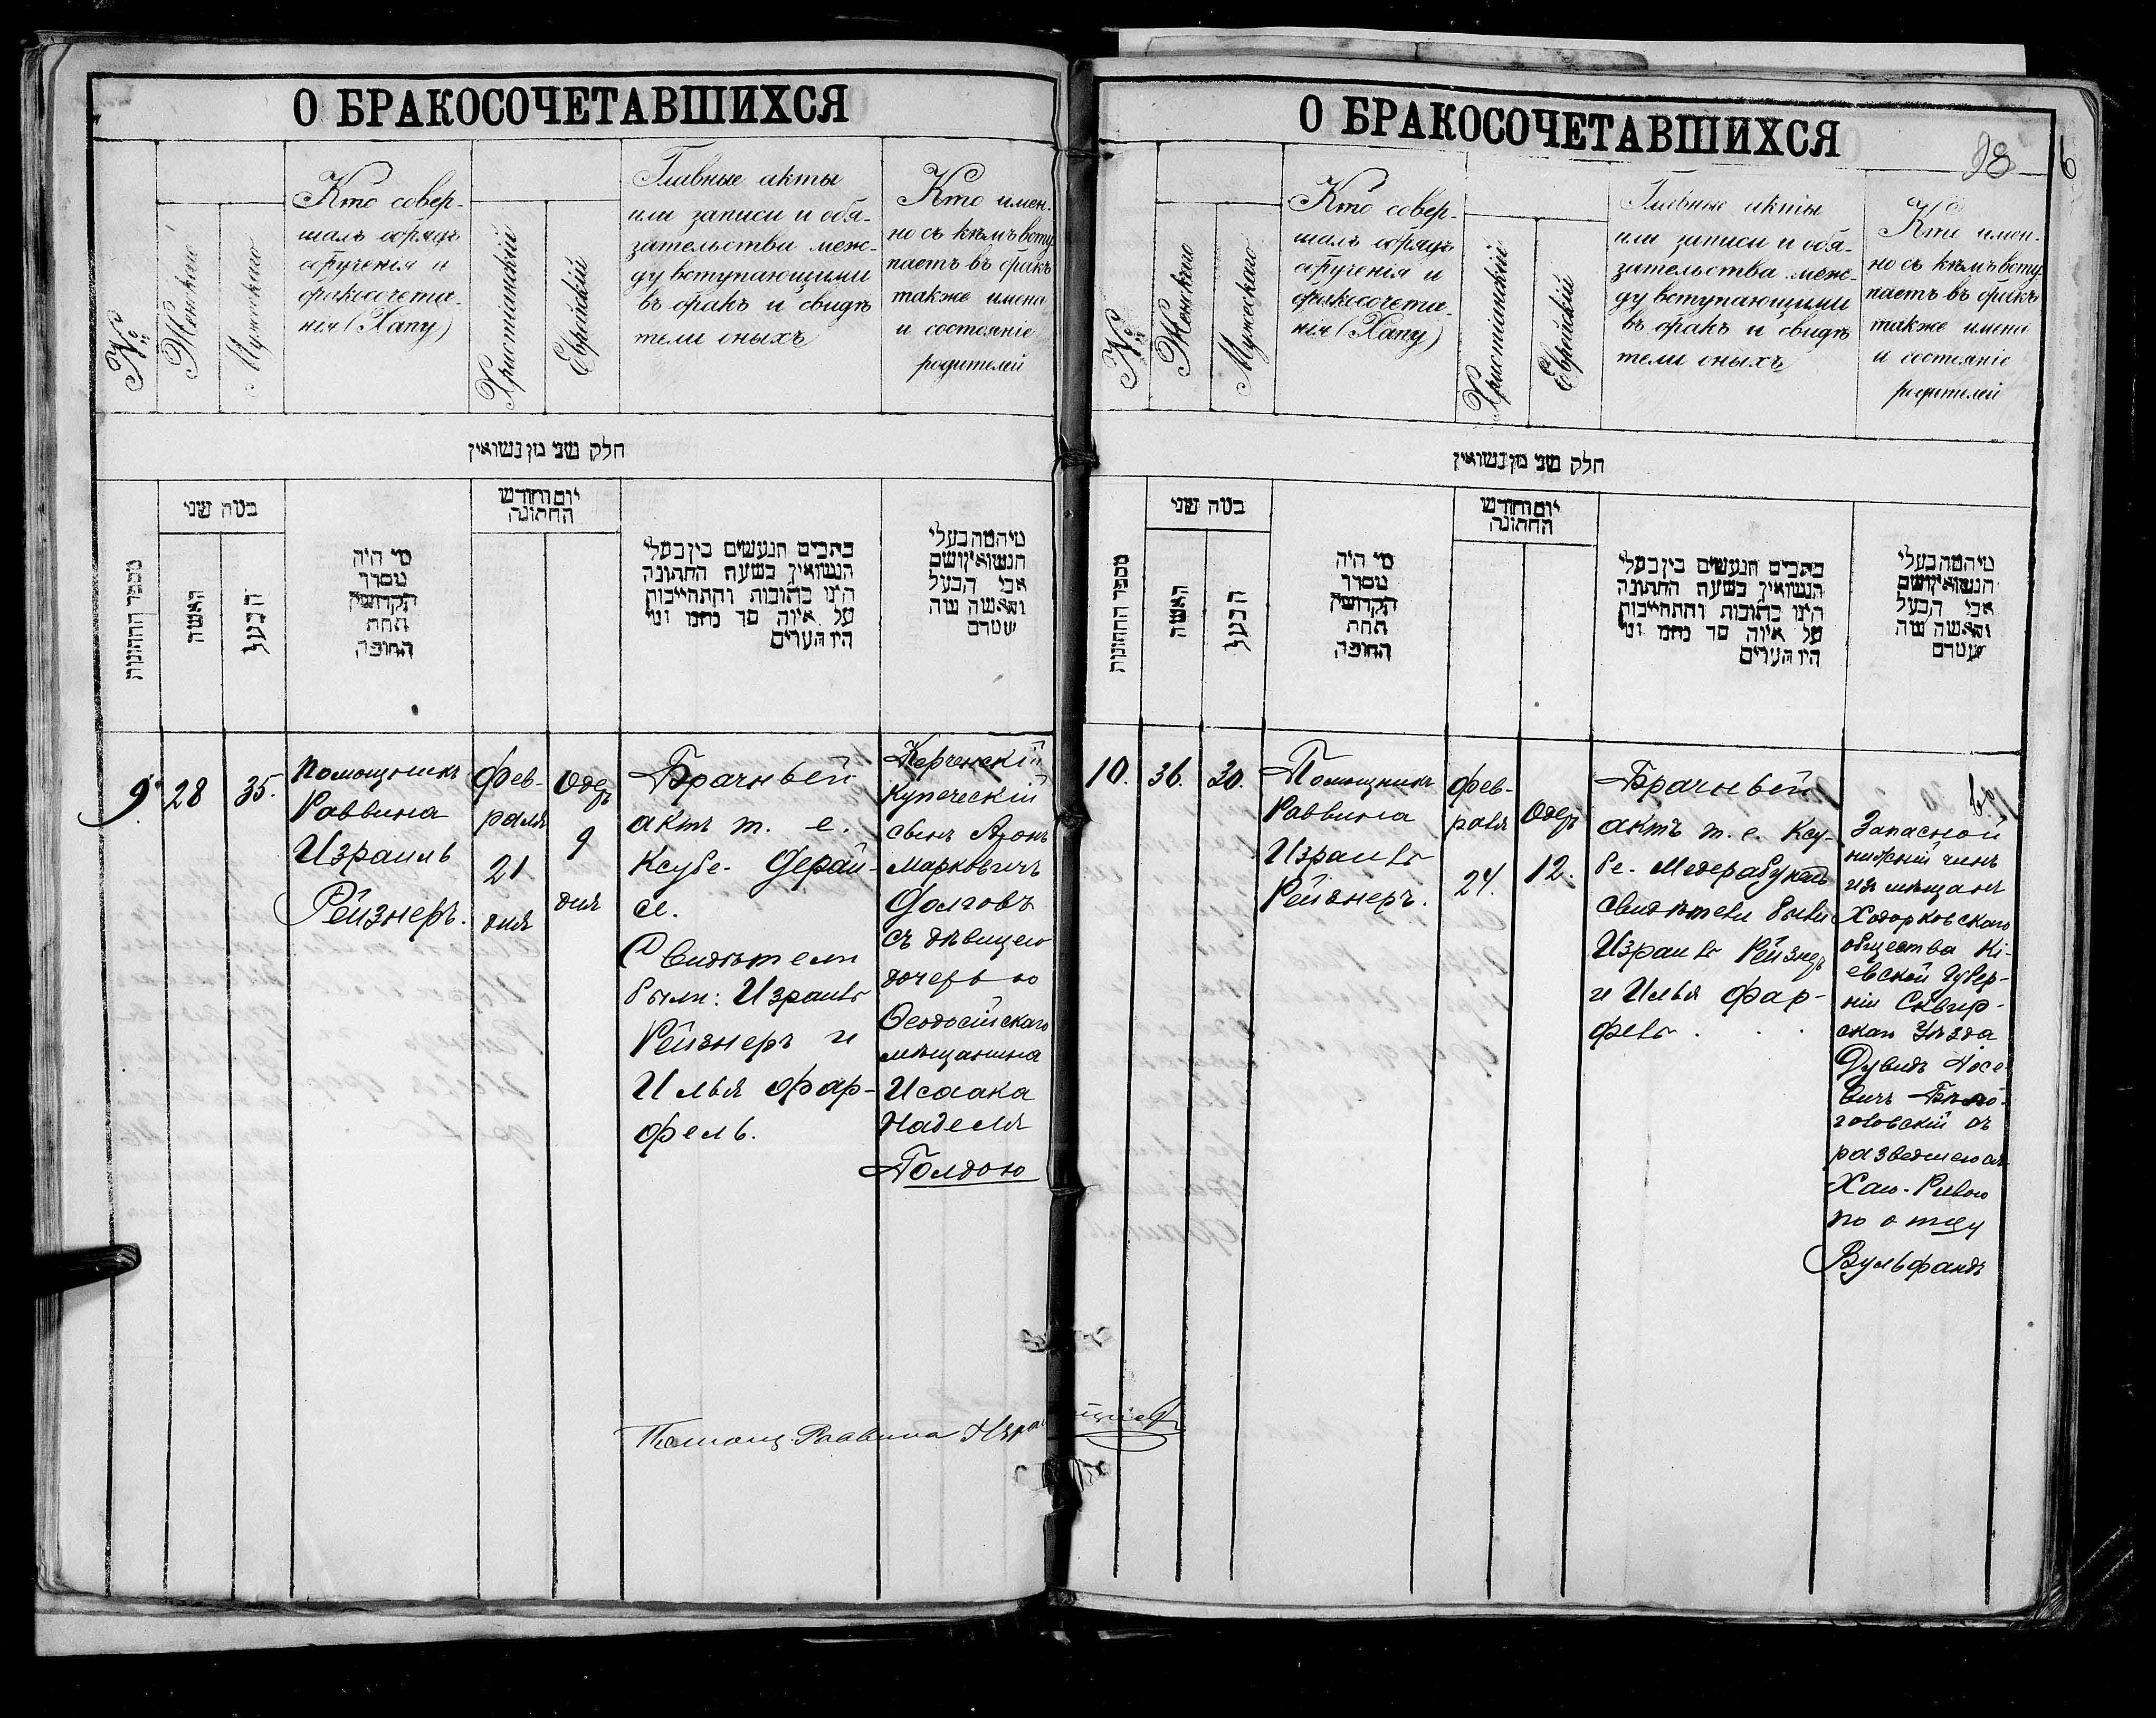 О БРАКОСОЧЕТАВШИХСЯ
№
Женскаго
Мужескаго
Кто совер-
шалъ обрядъ
обрученія и
бракосочета-
нія (Хапу)
Христіанскій
Еврейскій
Главные акты
или записи и обя-
зательства меж-
ду вступающими
въ бракъ и свидѣ
тели оныхъ
Кто имен-
но съ кѣмъ всту
паетъ въ бракъ
также имена
и состояніе
родителей
חלק שני מן נשואין
מספר החתונות
כמה שני
האשה
הבעל
מי היה
מסדר
הקדושין
תחת
החופה
יום וחודש
החתונה
כתבים הנעשים בין בעלי
הנשואין בשעת החתונה
היינו כתובות והתחייבות
על איזה סך
היו העדים
הנשואין ושם
אבי הבעל
והאשה
9.
28
35.
Помощникъ
Раввина
Израиль
Рейзнеръ.
Фев-
раля
21
дня
Одеръ
9
дня
Брачный
актъ т. е.
Ксубе. Дерай-
се.
Свидѣтели
были: Израиль
Рейзнеръ и
Илья Фар-
фель.
Керченскій
купеческій
сынъ Аронъ
Марковичъ
Долговъ
съ дѣвицею
дочерью
Ѳеодосійскаго
мѣщанина
Исаака
Наделя
Голдою
Помощ. Раввина
О БРАКОСОЧЕТАВШИХСЯ
98
6
№
Женскаго
Мужескаго
Кто совер-
шалъ обрядъ
обрученія и
бракосочета-
нія (Хапу)
Христіанскій
Еврейскій
Главные акты
или записи и обя-
зательства меж-
ду вступающими
въ бракъ и свидѣ
тели оныхъ
Кто имен-
но съ кѣмъ всту
паетъ въ бракъ
также имена
и состояніе
родителей
חלק שני מן נשואין
מספר החתונות
כמה שני
האשה
הבעל
מי היה
מסדר
הקדושין
תחת
החופה
יום וחודש
החתונה
כתבים הנעשים בין בעלי
הנשואין בשעת החתונה
היינו כתובות והתחייבות
על איזה סך
היו העדים
הנשואין ושם
אבי הבעל
והאשה
10.
36.
30.
Помощникъ
Раввина
Израиль
Рейзнеръ.
Фев-
раля
24.
Одеръ
12.
Брачный
актъ т. е. Ксу-
бе.
свидѣтели были
Израиль Рейзнеръ
и Илья Фар-
фель.
Запасной
нижній чинъ
изъ мѣщанъ
Ходорковскаго
общества Кі-
евской Губер-
ніи Сквир-
скаго Уѣзда
Дувидъ Іосе-
вичъ Бѣло-
головскій съ
разведшеюся
Хаю-Ривою
по отцу
Вульфандъ